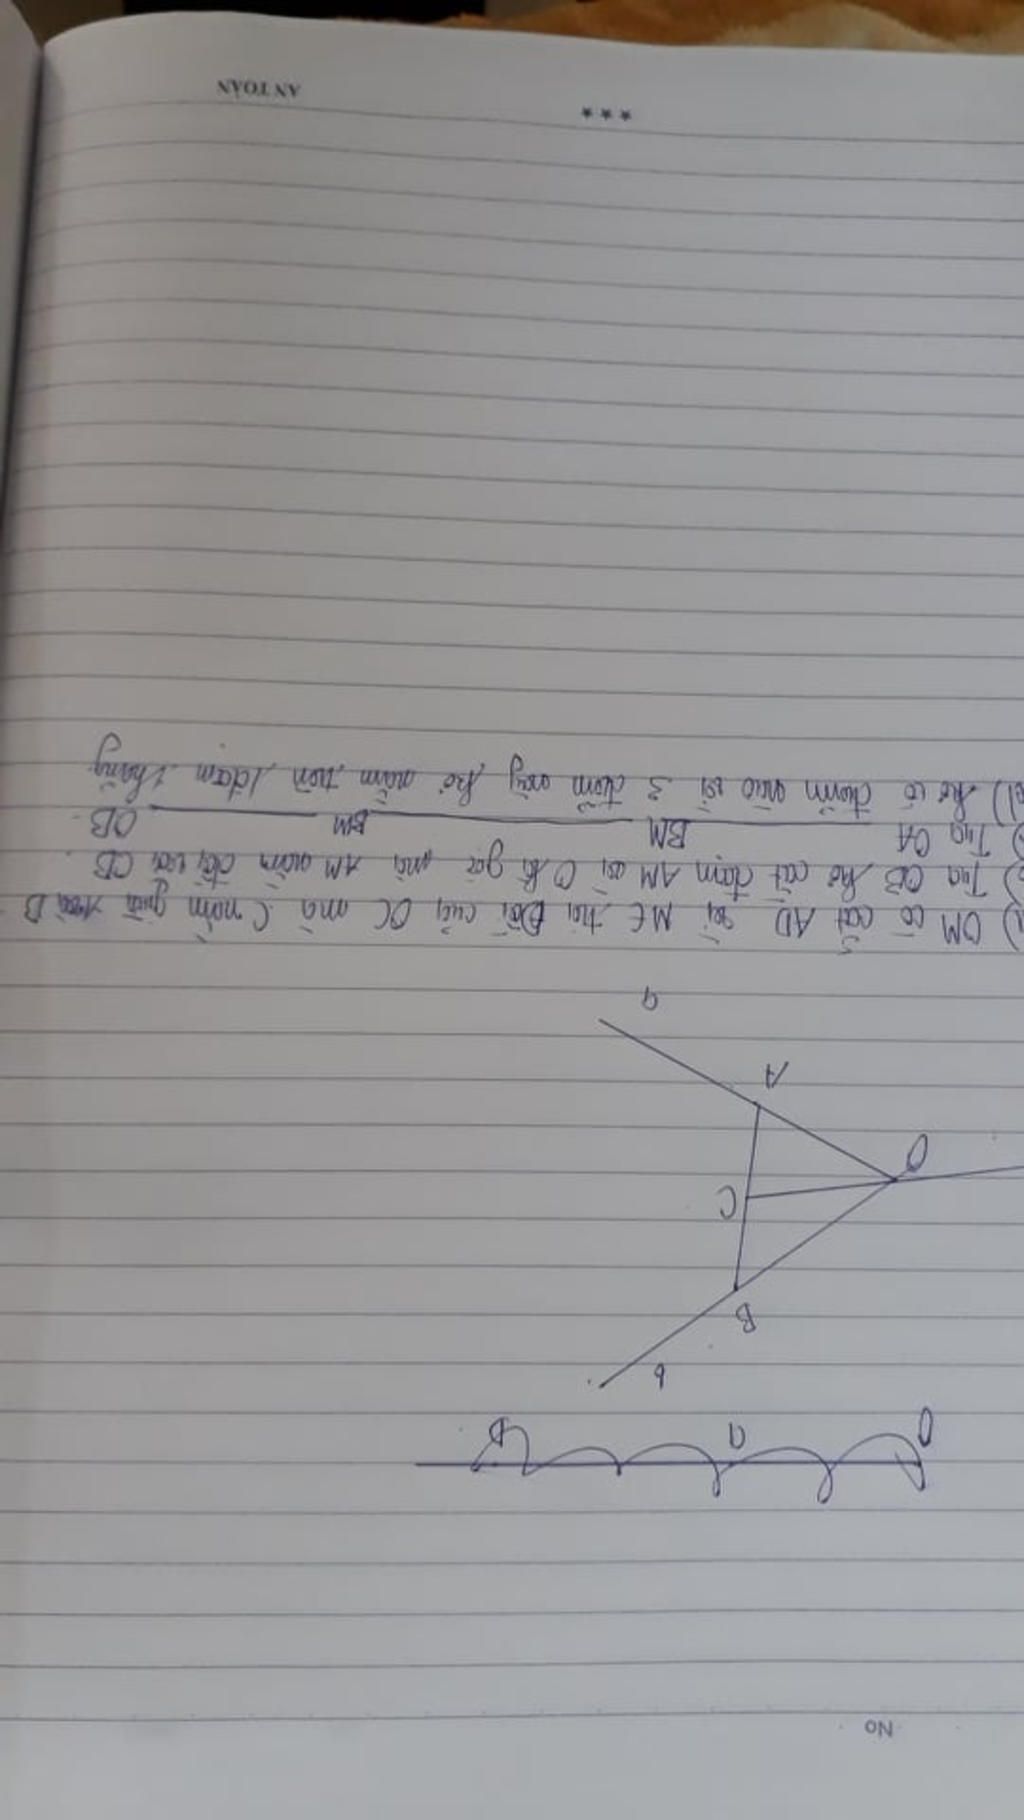 No
O a B
b
B
C
O
A
a
OM có cắt AD vì M ∈ tia Đối của OC mà C nằm giữa B
Tia OB ko cắt đoạn AM vì O là gốc mà AM nằm đối với OB.
Tia OA BM BM OB.
ko có điểm nào vì 3 điểm này ko nằm trên 1 đoạn thẳng
***
AN TOÀN